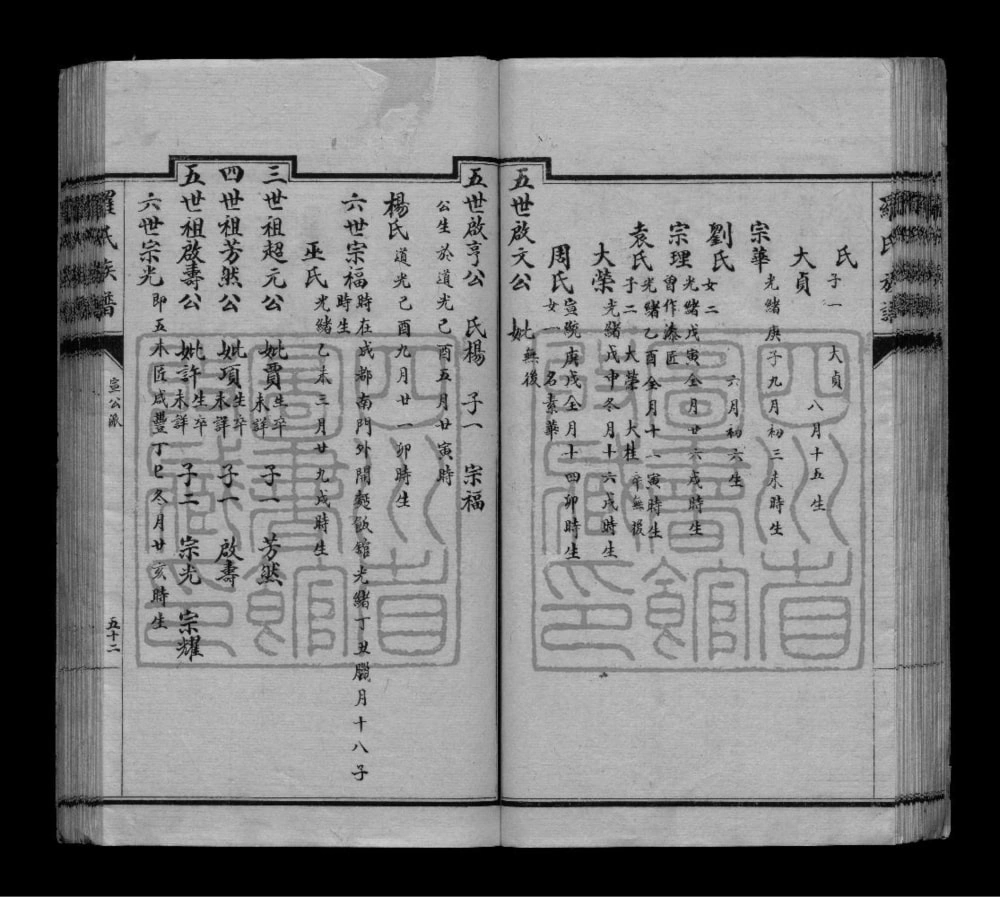 氏 子一 大貞
大貞 八月十五生
宗華 光緒庚子九月初三未時生
劉氏 女二 六月初六生
宗理 光緒戊寅全月廿六戌時生
曾作漆匠
袁氏 光緒乙酉全月十一寅時生
子二 大榮 大桂 卒無後
大榮 光緒戊申冬月十六戌時生
周氏 宣統庚戌全月十四卯時生
女一 名素華
五世啟文公 妣 無後
五世啟亨公 氏楊 子一 宗福
公生於道光己酉五月廿寅時
楊氏 道光己酉九月廿一卯時生
六世宗福 時在成都南門外開麵飯舘光緒丁丑臘月十八子
時生
巫氏 光緒乙未三月廿九戌時生
三世祖超元公 妣賈 生卒未詳 子一 芳然
四世祖芳然公 妣項 生卒未詳 子一 啟壽
五世祖啟壽公 妣許 生卒未詳 子二 宗光 宗耀
六世宗光 即五木匠咸豐丁巳冬月廿亥時生
羅氏族譜
宣公派
五十二
四川省
圖書館
藏印